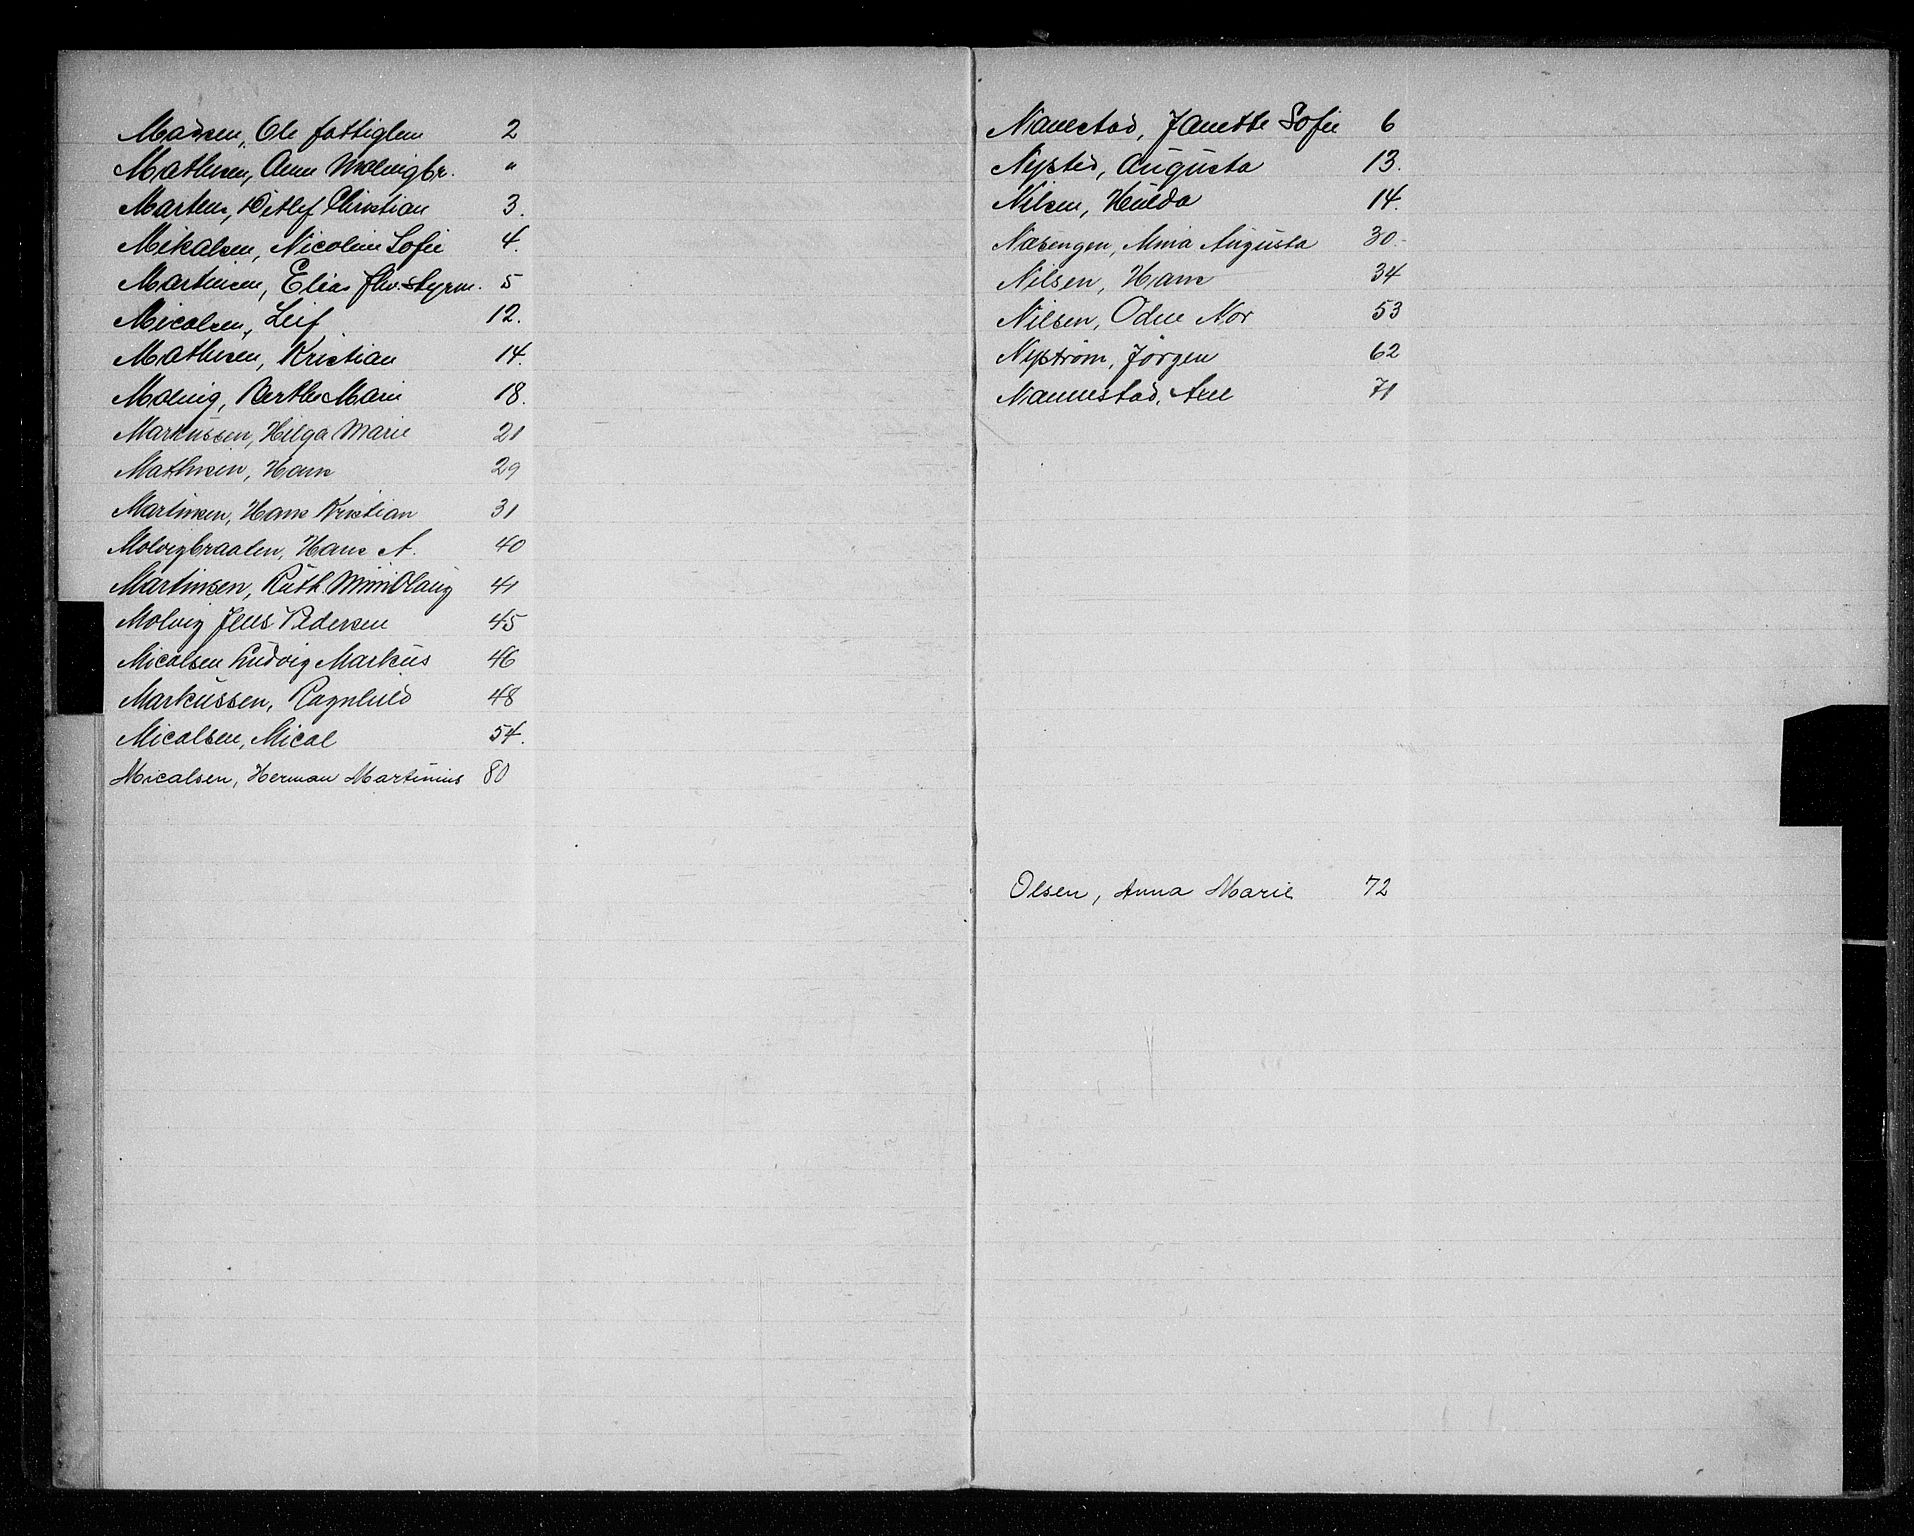 Madsen, Ole fattiglem 2
Mathisen, Anne Molvigbr. "
Martens, Detlef Christian 3.
Mikalsen, Nicoline Sofie 4.
Martinsen, Elias fhv. styrm. 5
Micalsen, Leif 12.
Mathisen, Kristian 14.
Molvig, Berthe Marie 18.
Markussen, Helga Marie 21
Mathisen, Hans 29
Martinsen, Hans Kristian 31
Molvigbraaten, Hans A. 40
Martinsen, Ruth Mimi Olaug 41
Molvig Jens Pedersen 45
Micalsen Ludvig Markus 46
Markussen, Ragnhild 48
Micalsen, Mical 54.
Micalsen, Herman Martinius 80
Nanestad, Janette Sofie 6
Nysted, Augusta 13.
Nilsen, Hulda 14.
Næsengen, Mina Augusta 30.
Nilsen, Hans 34
Nilsen, Odne Nor 53
Nystrøm, Jørgen 62
Nannestad, Ane 71
Olsen, Anna Marie 72